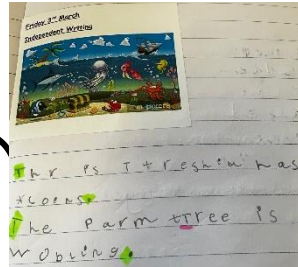 Friday 3rd March
Independent Writing
Thr is T treshim has
coens.
The Parm tTree is
Wobling.